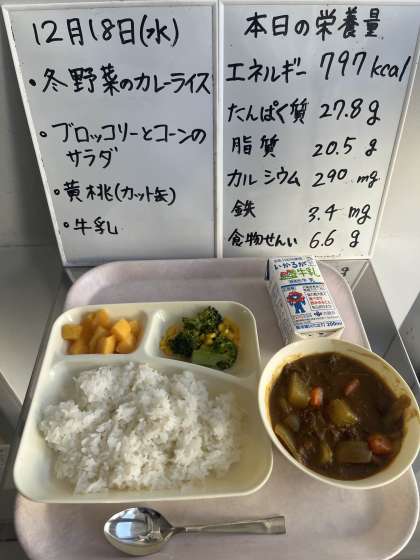 12月18日(水)
・冬野菜のカレーライス
・ブロッコリーとコーンの
サラダ
・黄桃(カット缶)
・牛乳
本日の栄養量
エネルギー 797kcal
たんぱく質 27.8g
脂質 20.5g
カルシウム 290mg
鉄 3.4mg
食物せんい 6.6g
いかるが
牛乳